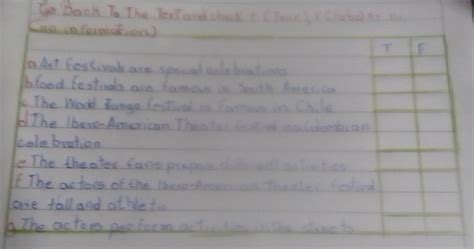 Go Back To The Text and check T (True), F (False) or n
information)
T F
a Art festivals are special celebrations
b food festivals are famous in South America
c The World Tango festival is famous in Chile
d The Ibero-American Theater festival is a Colombian
celebration
e The theater fans prepare different activities
f The actors of the Ibero-American Theater festival
are tall and athletic
g The actors perform activities in the streets